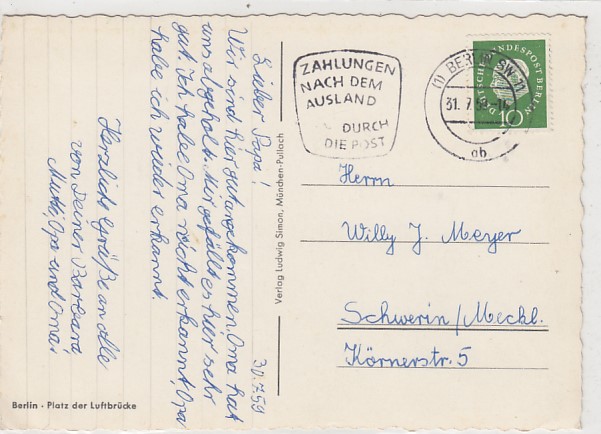 30.7.59
Lieber Papa!
Wir sind hier gut angekommen. Oma hat
uns abgeholt. Mir gefällt es hier sehr
gut. Ich habe Oma nicht erkannt, Opa
habe ich wieder erkannt.
Herzliche Grüße an alle
von Deiner Barbara
Mutti, Opa und Oma!
Berlin · Platz der Luftbrücke
Verlag Ludwig Simon, München-Pullach
ZAHLUNGEN
NACH DEM
AUSLAND
DURCH
DIE POST
(1) BERLIN SW 11
31. 7. 59
ab
DEUTSCHE BUNDESPOST BERLIN
10
Herrn
Willy J. Meyer
Schwerin/Meckl.
Körnerstr. 5